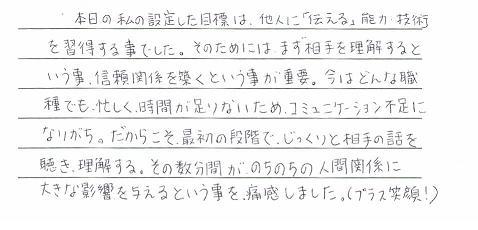 本日の私の設定した目標は、他人に「伝える」能力・技術
を習得する事でした。そのためには、まず相手を理解すると
いう事、信頼関係を築くという事が重要。今はどんな職
種でも、忙しく、時間が足りないため、コミュニケーション不足に
なりがち。だからこそ、最初の段階で、じっくりと相手の話を
聴き、理解する。その数分間が、のちのちの人間関係に
大きな影響を与えるという事を、痛感しました。(プラス笑顔!)